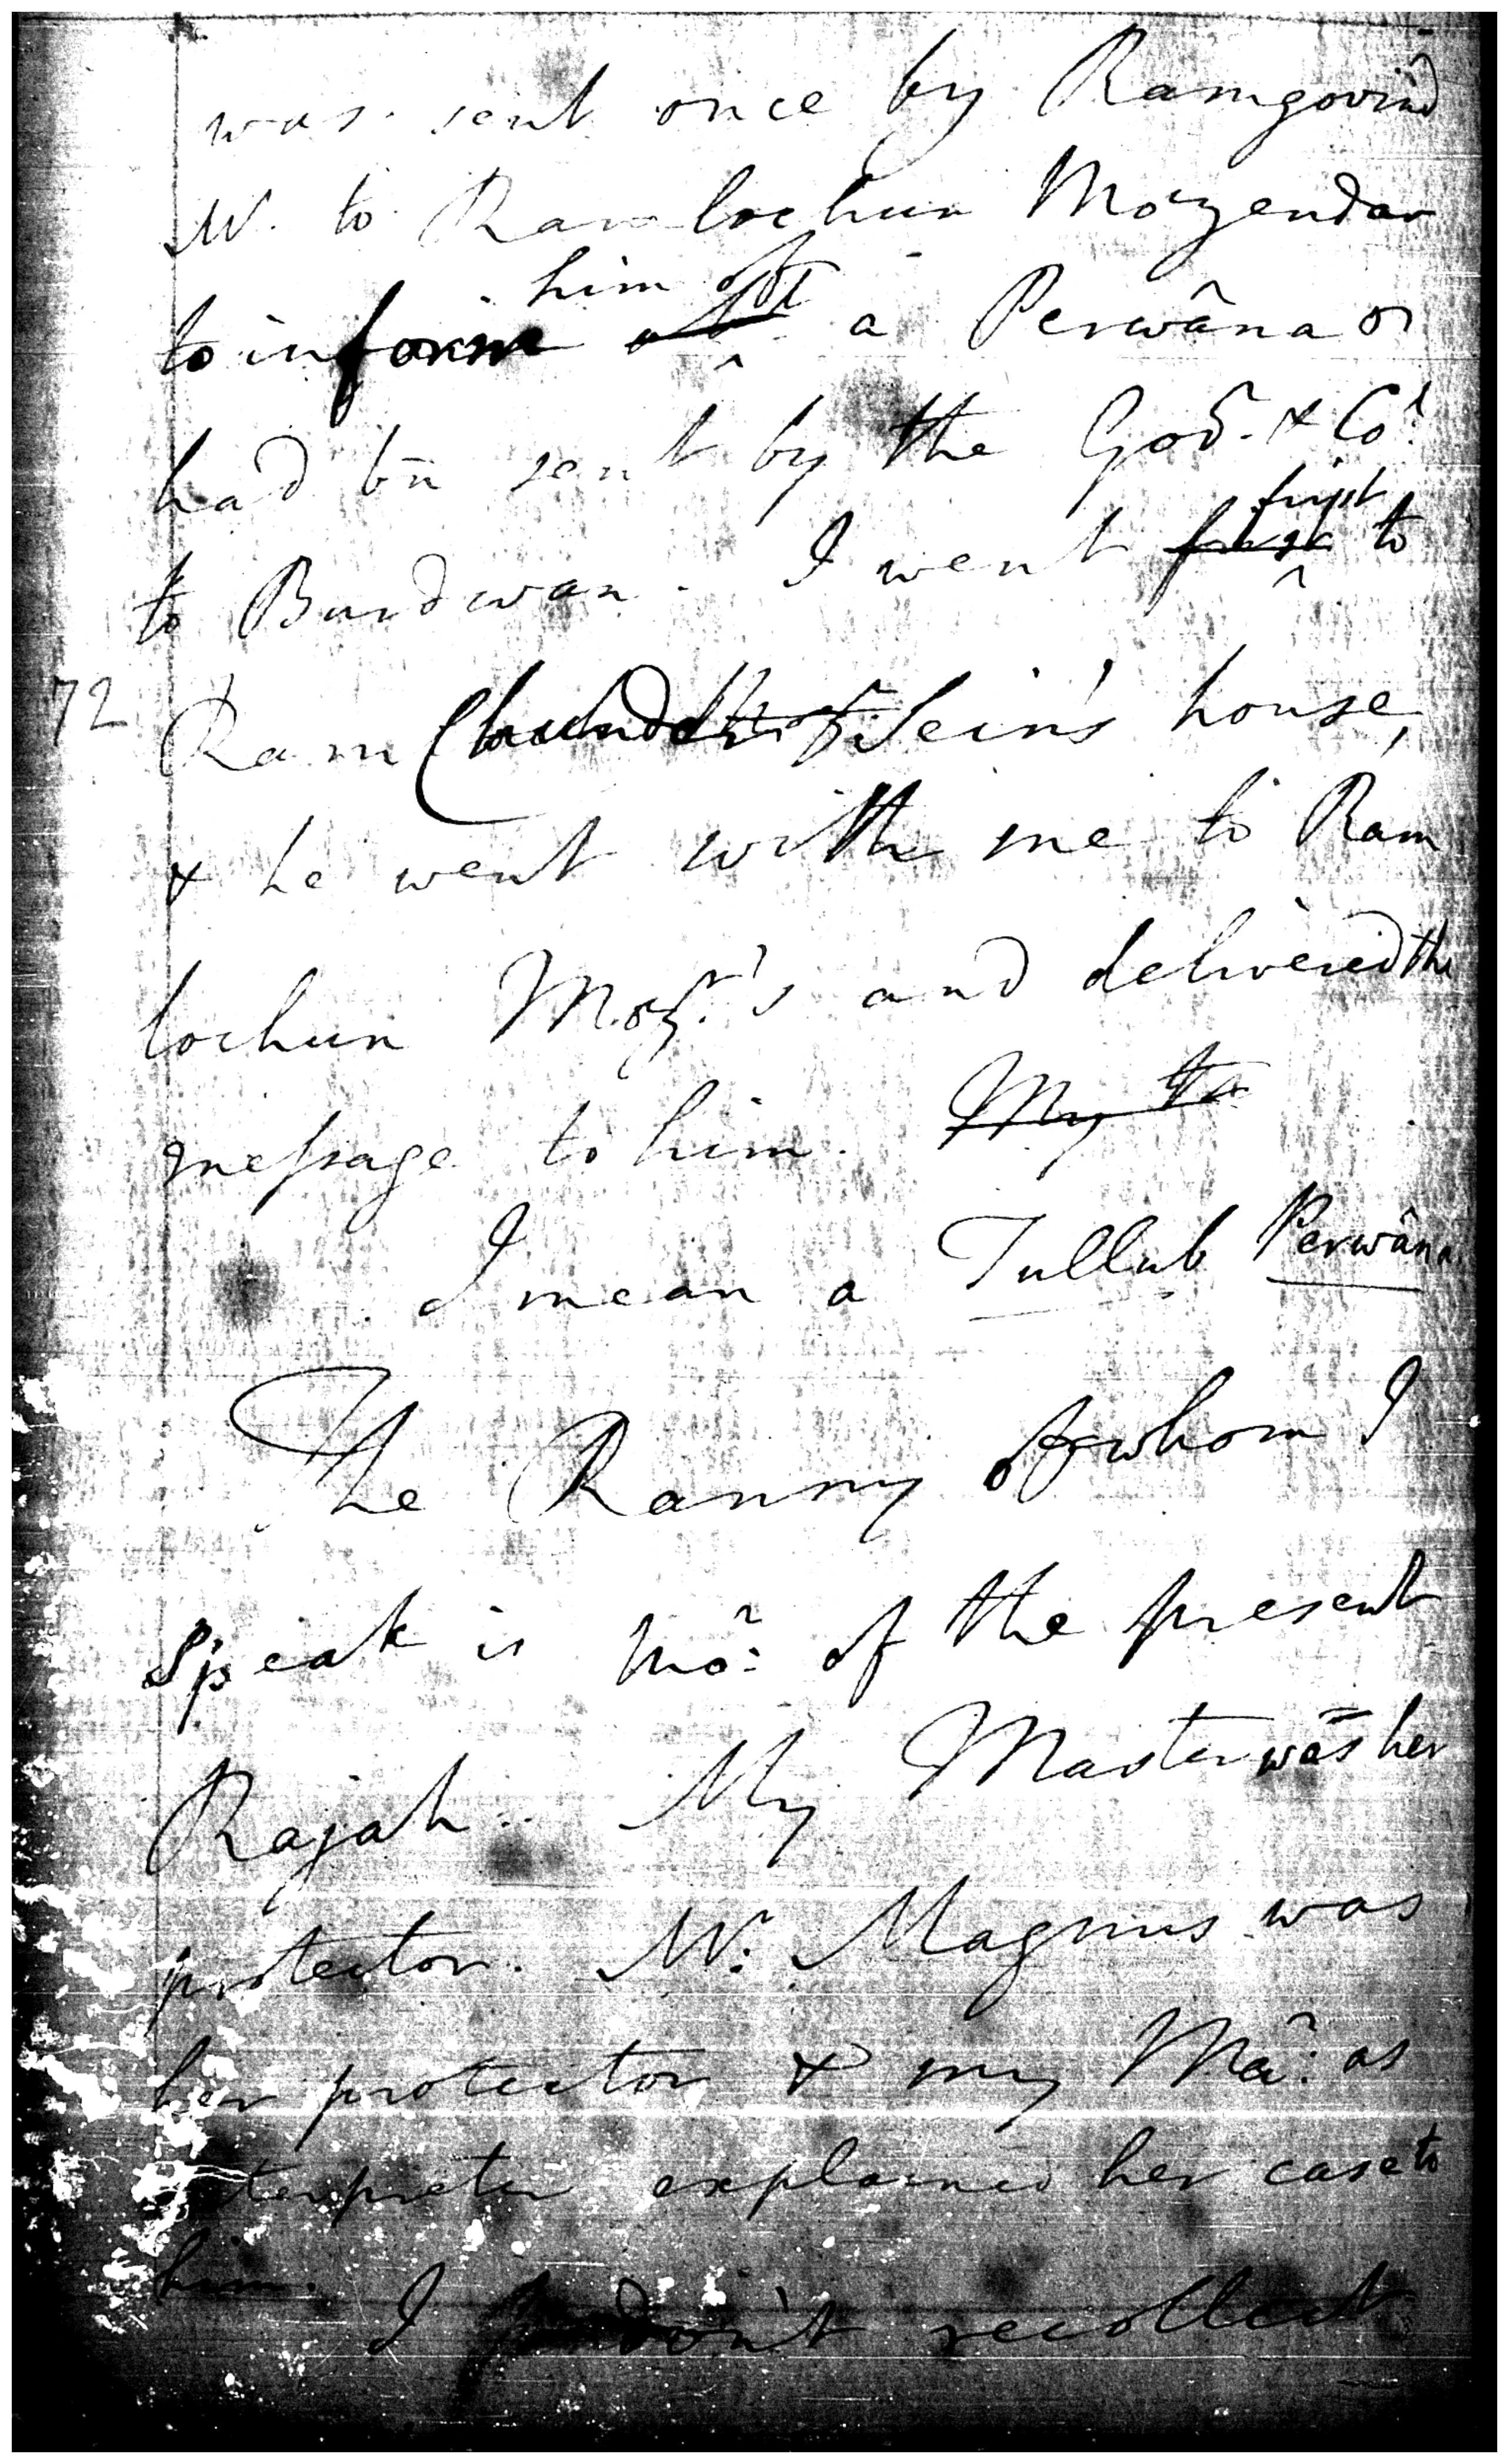 was sent once by Ramgovind
M. to Ramlochun Mozendar
him of
to inform a Perwâna
had bn̄ sent by the Gov̄. & Co!
first
to Burdwan. I went to
72 Ram Chunder Sein's house,
& he went with me to Ram
lochun Moz.'s and delivered the
message to him. My
I mean a Tullub Perwâna.
The Ranny of whom I
speak is mo͂: of the present
Rajah. My Master was her
protector. Mr. Magnus was
her protector & my Ma͂: as
terpreter explained her case to
him.
I don't recollect